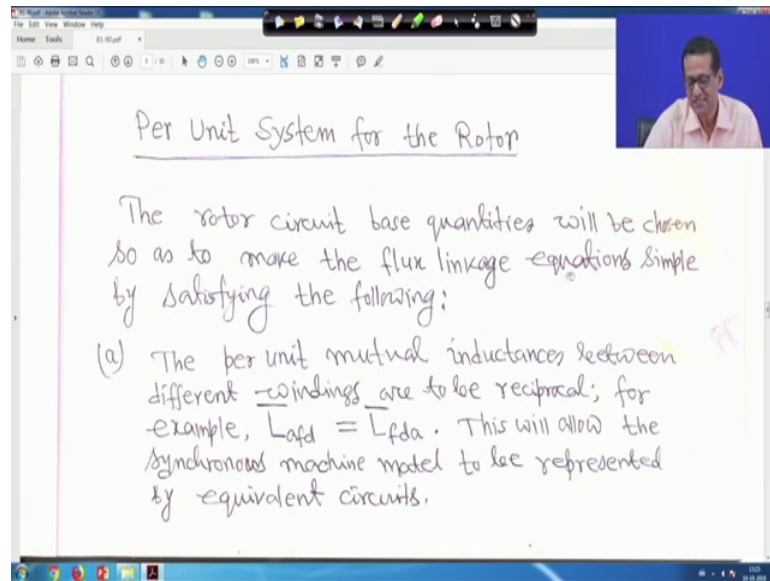 File Edit View Window Help
Home Tools 81-90.pdf ×
Per Unit System for the Rotor
The rotor circuit base quantities will be chosen
so as to make the flux linkage equations simple
by satisfying the following:
(a) The per unit mutual inductances between
different windings are to be reciprocal; for
example, Lafd = Lfda. This will allow the
synchronous machine model to be represented
by equivalent circuits.
13:23